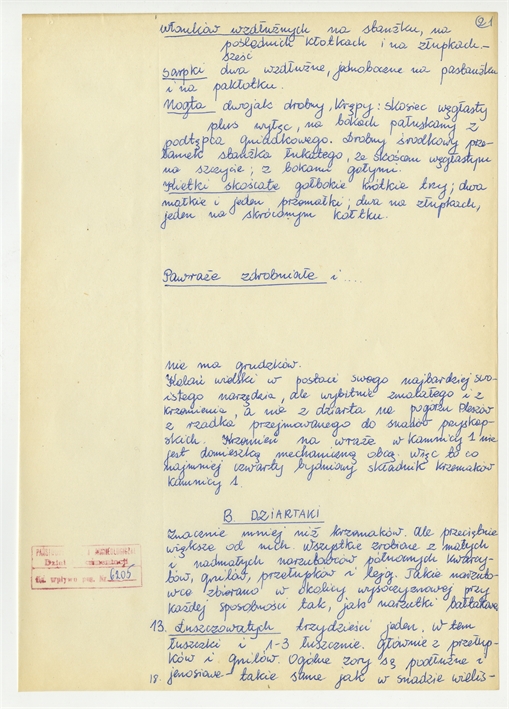 21
wiórków wzdłużnych na stanżku, na
pośladnich kłotkach i na złupkach -
sześć
sarpki dwa wzdłużne, jednoboczne na pastanżku
i na pakłotku.
Mogta dwojak drobny, krępy: skosiec węgłasty
plus wyłęc, na bokach pałuskany z
podtępca gniadkowego. Drobny środkowy prze-
łamek stanżka łukatego, ze skosem węgłastym
na szczycie; z bokami gołymi.
Kietki skościałe gołbokie krótkie trzy; dwa
małkie i jeden przemałki; dwa na złupkach,
jeden na skróconym kołtku.
Pawraże zdrobniałe i ....
nie ma grudzków.
Kalań wielski w postaci swego najbardziej swo-
istego narzędzia, ale wybitnie zmałałego i z
krzemienia, a nie z dziarta na pogórzu Pleszów
z rzadka przejmowanego do snadów pryskop-
skich. Krzemień na wraże w Kamnicy 1 nie
jest domieszką mechaniczną obcą. Więc to co
najmniej czwarty bydniowy składnik krzemaków
Kamnicy 1.
B. DZIARTAKI
Znaczenie mniej niż krzemaków. Ale przeciętnie
większe od nich. Wszystkie zrobione z małych
i nadmałych narzutowców północnych kwarcy-
tów, gnilów, przełupków i
Takie narzuto-
wce zbierano w okolicy wysoczyznowej przy
każdej sposobności tak, jak narzutki bałtakowe
13. Łuszczowatych trzydzieści jeden, w tem
łuszczki i 1-3 łusznie. Głównie z przełup-
ków i gnilów. Ogólne zory są podłużne i
18. jenosiowe - takie same jak w snadzie wieliś-
Dział
Gł. wpływu poz. Nr 6105